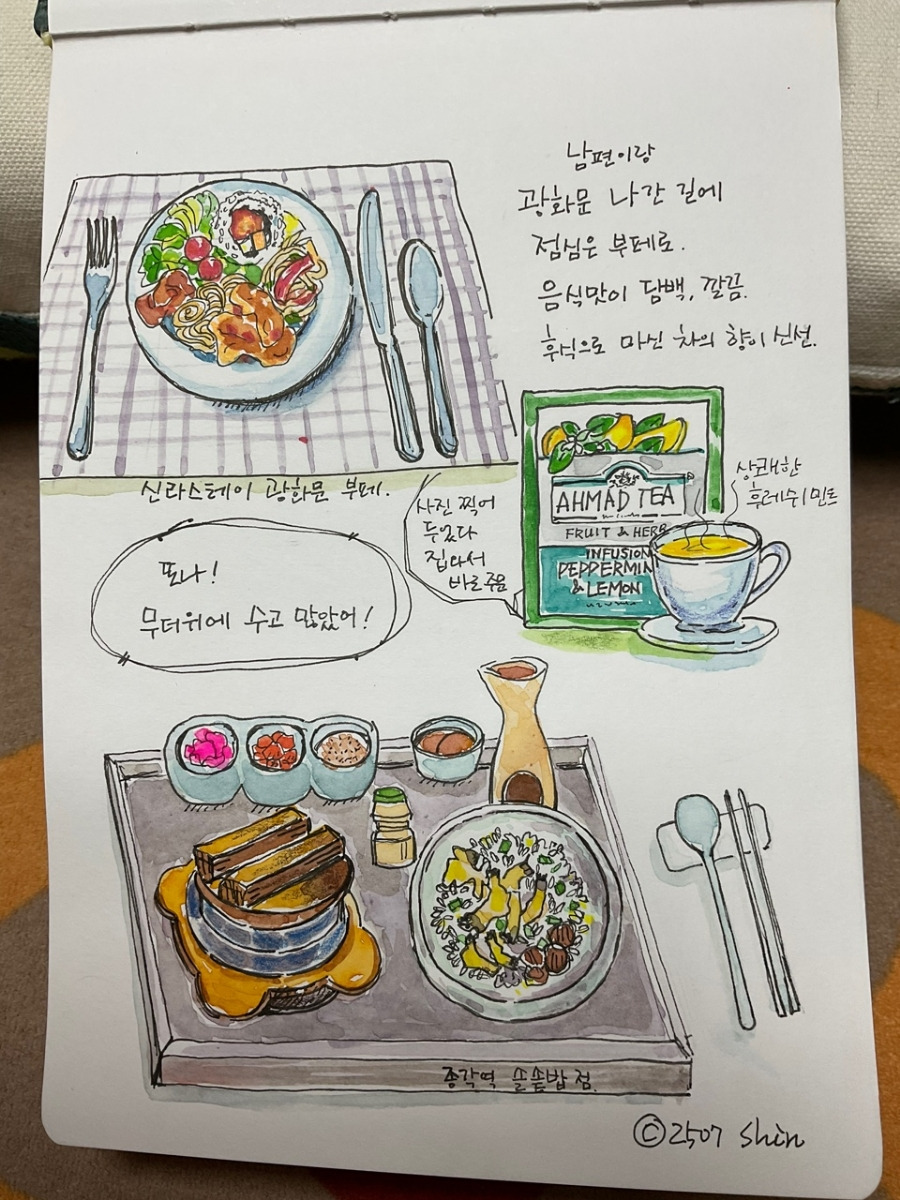 남편이랑
광화문 나간 길에
점심은 부페로.
음식맛이 담백, 깔끔.
후식으로 마신 차의 향이 신선.
신라스테이 광화문 부페.
사진 찍어
두었다
집와서
바로 주움
AHMAD TEA
FRUIT & HERB
INFUSION
PEPPERMIN
& LEMON
상쾌한
후레쉬 민트
또나!
무더위에 수고 많았어!
종각역 솔솥밥 점.
©2507 Shin